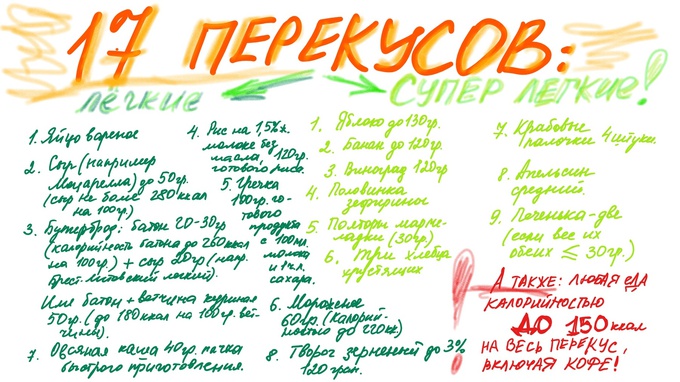 17 ПЕРЕКУСОВ:
лёгкие
СУПЕР ЛЕГКИЕ!
1. Яйцо вареное
2. Сыр (например
Моцарелла) до 50гр.
(сыр не более 280 ккал
на 100гр)
3. Бутерброд: батон 20-30гр
(калорийность батона до 260 ккал
на 100гр.) + сыр 20гр (напр.
Брест-Литовский легкий).
Или батон + ветчина куриная
50гр. (до 180 ккал на 100гр. вет-
чины).
7. Овсяная каша 40гр. пачка
быстрого приготовления.
4. Рис на 1,5% ж.
молоке без
масла, 120гр.
готового риса.
5. Гречка
100гр. го-
тового
продукта
с 100мл.
молока
и 1 ч.л.
сахара.
6. Мороженое
60гр. (калорий-
ностью до 220кк)
8. Творог зерненый до 3%
120 грам.
1. Яблоко до 130гр.
2. Банан до 120гр.
3. Виноград 120гр
4. Половинка
зефирины
5. Полторы марме-
ладки (30гр)
6. Три хлебца
хрустящих
7. Крабовые
палочки 4 штуки.
8. Апельсин
средний.
9. Печенька - две
(если вес их
обеих ≤ 30гр.)
А ТАКЖЕ: ЛЮБАЯ ЕДА
КАЛОРИЙНОСТЬЮ
ДО 150 ккал
НА ВЕСЬ ПЕРЕКУС,
ВКЛЮЧАЯ КОФЕ!